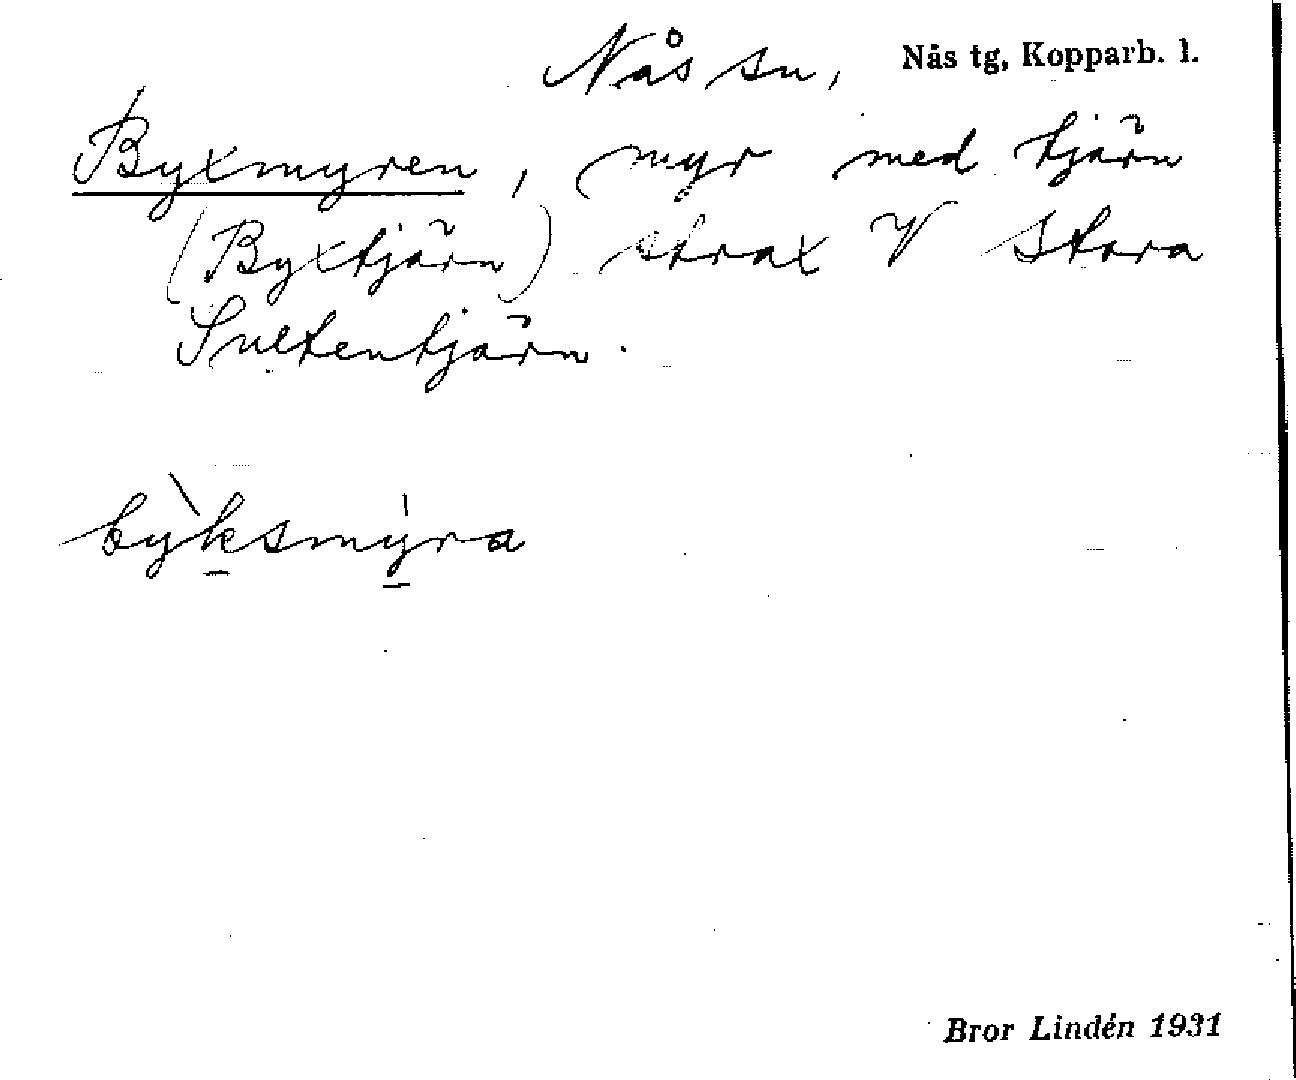 Nås sn, Nås tg, Kopparb. l.
Byxmyren, myr med tjärn
(Byxtjärn) strax V Stora
Sultentjärn.
by̍ksmyra
Bror Lindén 1931